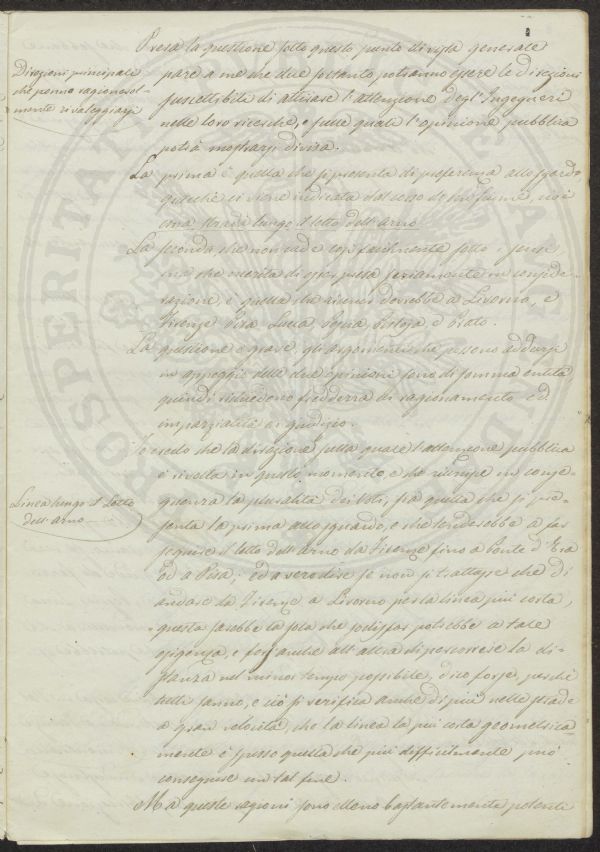 Presa la questione sotto questo punto di vista generale
Direzioni principale
che penno ragionevol-
mente rivaleggiarsi
pare a me che due soltanto potranno essere le direzioni
suscettibile di attirare l'attenzione degl'Ingegneri
nelle loro ricerche, e sulle quale l'opinione pubblica
potrà mostrarsi divisa.
La prima è quella che si presenta di preferenza allo sguardo
giacchè ci viene indicata dal corso de' fiumi, cioè
una strada lungo il letto dell'Arno
La seconda che non cade così facilmente sotto i sensi,
ma che merita di esser presa seriamente in conside-
razione, è quella che riunir dovrebbe a Livorno, e
Firenze Pisa Lucca Pistoja, e Prato.
La questione è grave, gli argomenti che possono addursi
in appoggio delle due opinioni sono di somma entità
quindi richiedono freddezza di ragionamento ed
imparzialità di giudizio.
Io credo che la direzione sulla quale l'attenzione pubblica
è rivolta in questo momento, e che riunisce in conse-
guenza la pluralità dei voti, sia quella che si pre-
Linea lungo il Letto
dell'Arno
senta la prima allo sguardo, e che tenderebbe a far
seguire il letto dell'Arno da Firenze fino a Ponte d'Era
ed a Pisa; ed a vero dire se non si trattasse che di
andare da Firenze a Livorno per la linea più corta,
questa sarebbe la sola che sodisfar potrebbe a tale
esigenza, e fors'anche all'altra di percorrere la di-
stanza nel minor tempo possibile, dico forse, perchè
tutti sanno, e ciò si verifica anche di più nelle strade
a gran velocità, che la linea la più corta geometrica-
mente è spesso quella che più difficilmente può
conseguire un tal fine.
Ma queste ragioni sono elleno bastantemente potenti
PROSPERITATI PUBLICAE AUGENDAE